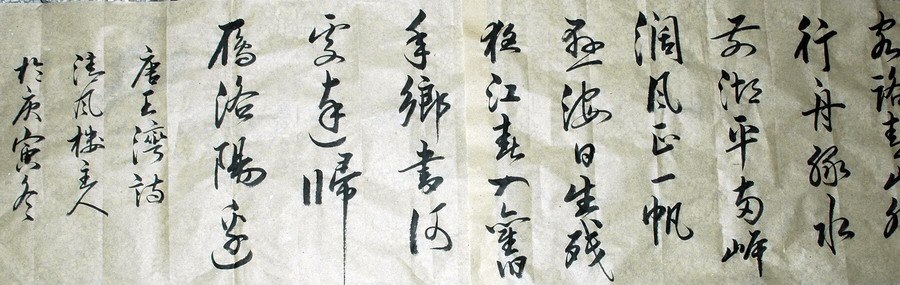 客路青山外
行舟绿水
前潮平两岸
阔风正一帆
悬海日生残
夜江春入舊
年鄉書何
處達歸
雁洛陽邊
唐王灣詩
清风楼主人
於庚寅冬